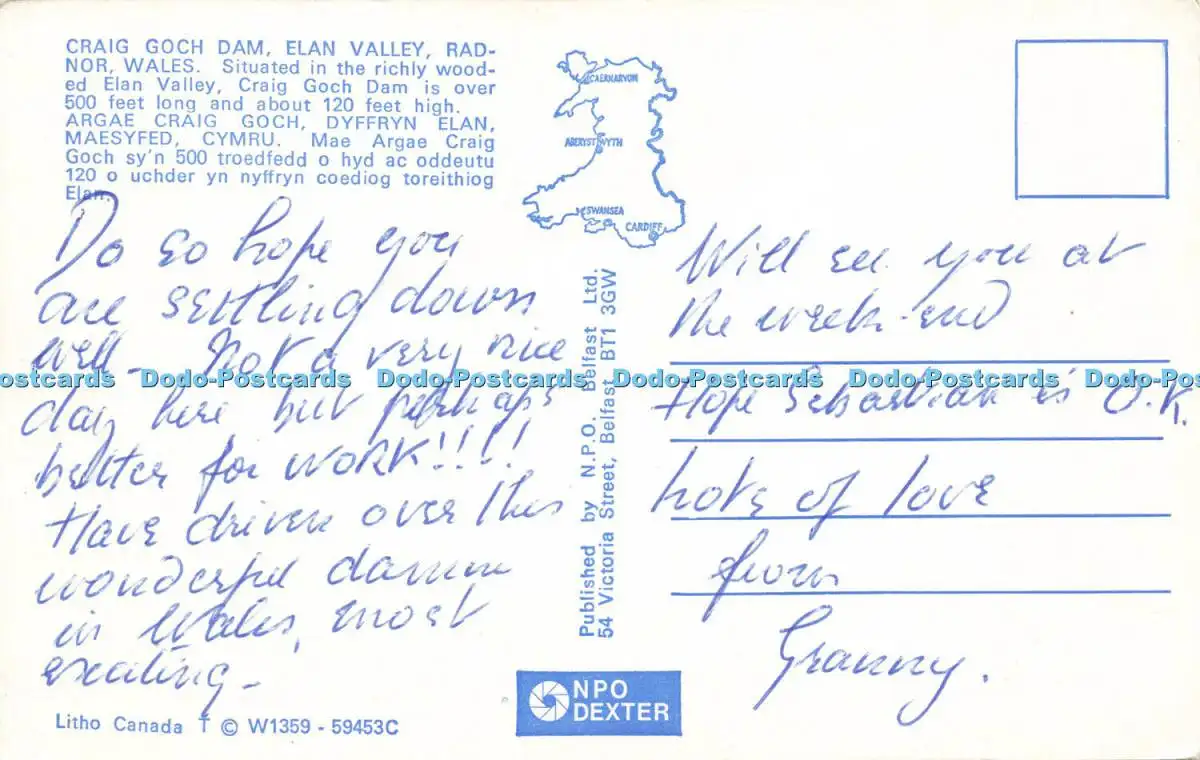 CRAIG GOCH DAM, ELAN VALLEY, RAD-
NOR, WALES. Situated in the richly wood-
ed Elan Valley, Craig Goch Dam is over
500 feet long and about 120 feet high.
ARGAE CRAIG GOCH, DYFFRYN ELAN,
MAESYFED, CYMRU. Mae Argae Craig
Goch sy'n 500 troedfedd o hyd ac oddeutu
120 o uchder yn nyffryn coediog toreithiog
Elan.
Do so hope you
are settling down
well - Not a very nice
day here but perhaps
better for work!!!!
Have driven over this
wonderful damm
in Wales, most
exciting -
Litho Canada † © W1359 - 59453C
CAERNARVON
ABERYSTWYTH
SWANSEA
CARDIFF
Published by N.P.O. Belfast Ltd.
54 Victoria Street, Belfast BT1 3GW
NPO
DEXTER
Will see you at
the week-end
Hope Sebastian is O.K.
Lots of love
from
Granny.
Dodo-Postcards Dodo-Postcards Dodo-Postcards Dodo-Postcards Dodo-Postcards Dodo-Postcards